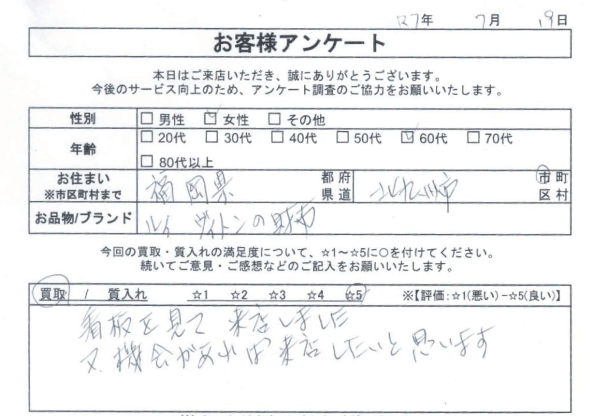 27年 7月 19日
お客様アンケート
本日はご来店いただき、誠にありがとうございます。
今後のサービス向上のため、アンケート調査のご協力をお願いいたします。
性別 □男性 ☑女性 □その他
年齢 □20代 □30代 □40代 □50代 ☑60代 □70代
□80代以上
お住まい ※市区町村まで 福岡県 都府県道 北九州市 市町区村
お品物/ブランド ルイ ヴィトンの財布
今回の買取・質入れの満足度について、☆1〜☆5に○を付けてください。
続いてご意見・ご感想などのご記入をお願いいたします。
買取 / 質入れ ☆1 ☆2 ☆3 ☆4 ☆5 ※【評価:☆1(悪い)−☆5(良い)】
看板を見て 来店しました
又、機会があれば来店したいと思います